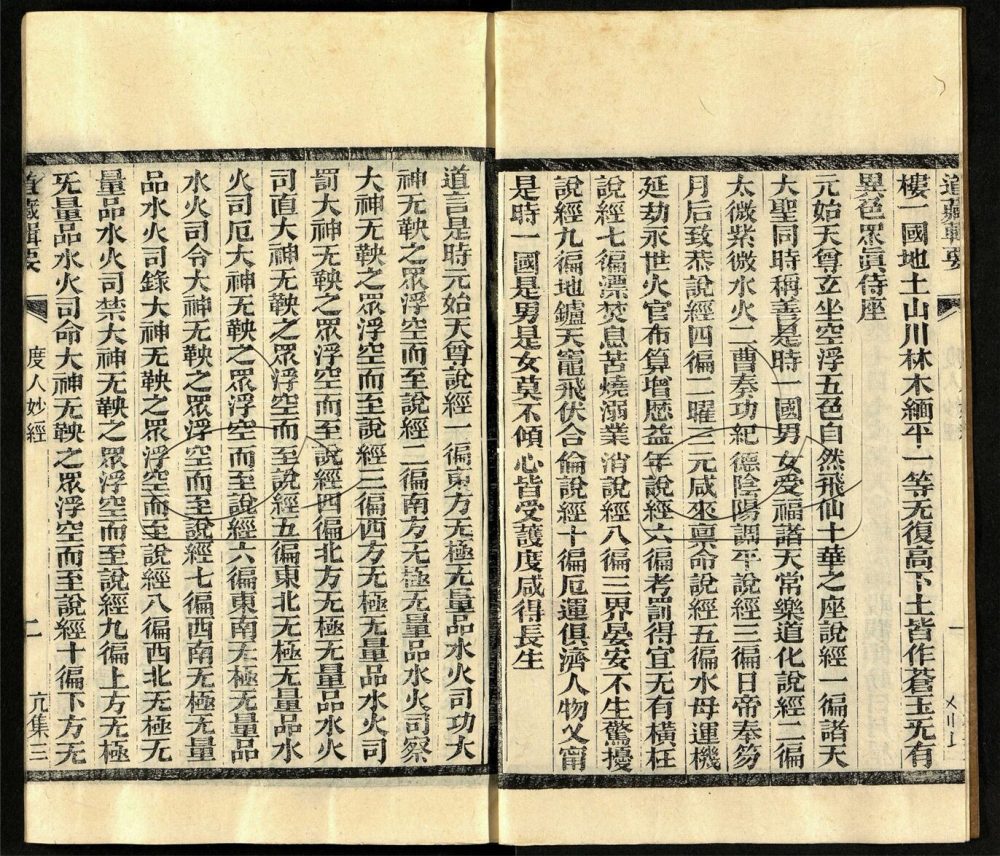 道藏輯要
樓一國地土山川林木緬平一等无復高下土皆作蒼玉无有
異色眾眞侍座
元始天尊立坐空浮五色自然飛仙十華之座說經一徧諸天
大聖同時稱善是時一國男女受福諸天常樂道化說經二徧
太微紫微水火二曹奏功紀德陰陽調平說經三徧日帝奉笏
月后致恭說經四徧二曜三元咸來稟命說經五徧水母運機
延劫永世火官布算增歷益年說經六徧考罰得宜无有橫枉
說經七徧漂焚息苦燒溺業消說經八徧三界晏安不生驚擾
說經九徧地鑪天竈飛伏合倫說經十徧厄運俱濟人物乂甯
是時一國是男是女莫不傾心皆受護度咸得長生
道言是時元始天尊說經一徧東方无極无量品水火司功大
神无鞅之眾浮空而至說經二徧南方无極无量品水火司察
大神无鞅之眾浮空而至說經三徧西方无極无量品水火司
罰大神无鞅之眾浮空而至說經四徧北方无極无量品水火
司直大神无鞅之眾浮空而至說經五徧東北无極无量品水
火司厄大神无鞅之眾浮空而至說經六徧東南无極无量品
水火司令大神无鞅之眾浮空而至說經七徧西南无極无量
品水火司錄大神无鞅之眾浮空而至說經八徧西北无極无
量品水火司禁大神无鞅之眾浮空而至說經九徧上方无極
无量品水火司命大神无鞅之眾浮空而至說經十徧下方无
道藏輯要 度人妙經 二 亢集三